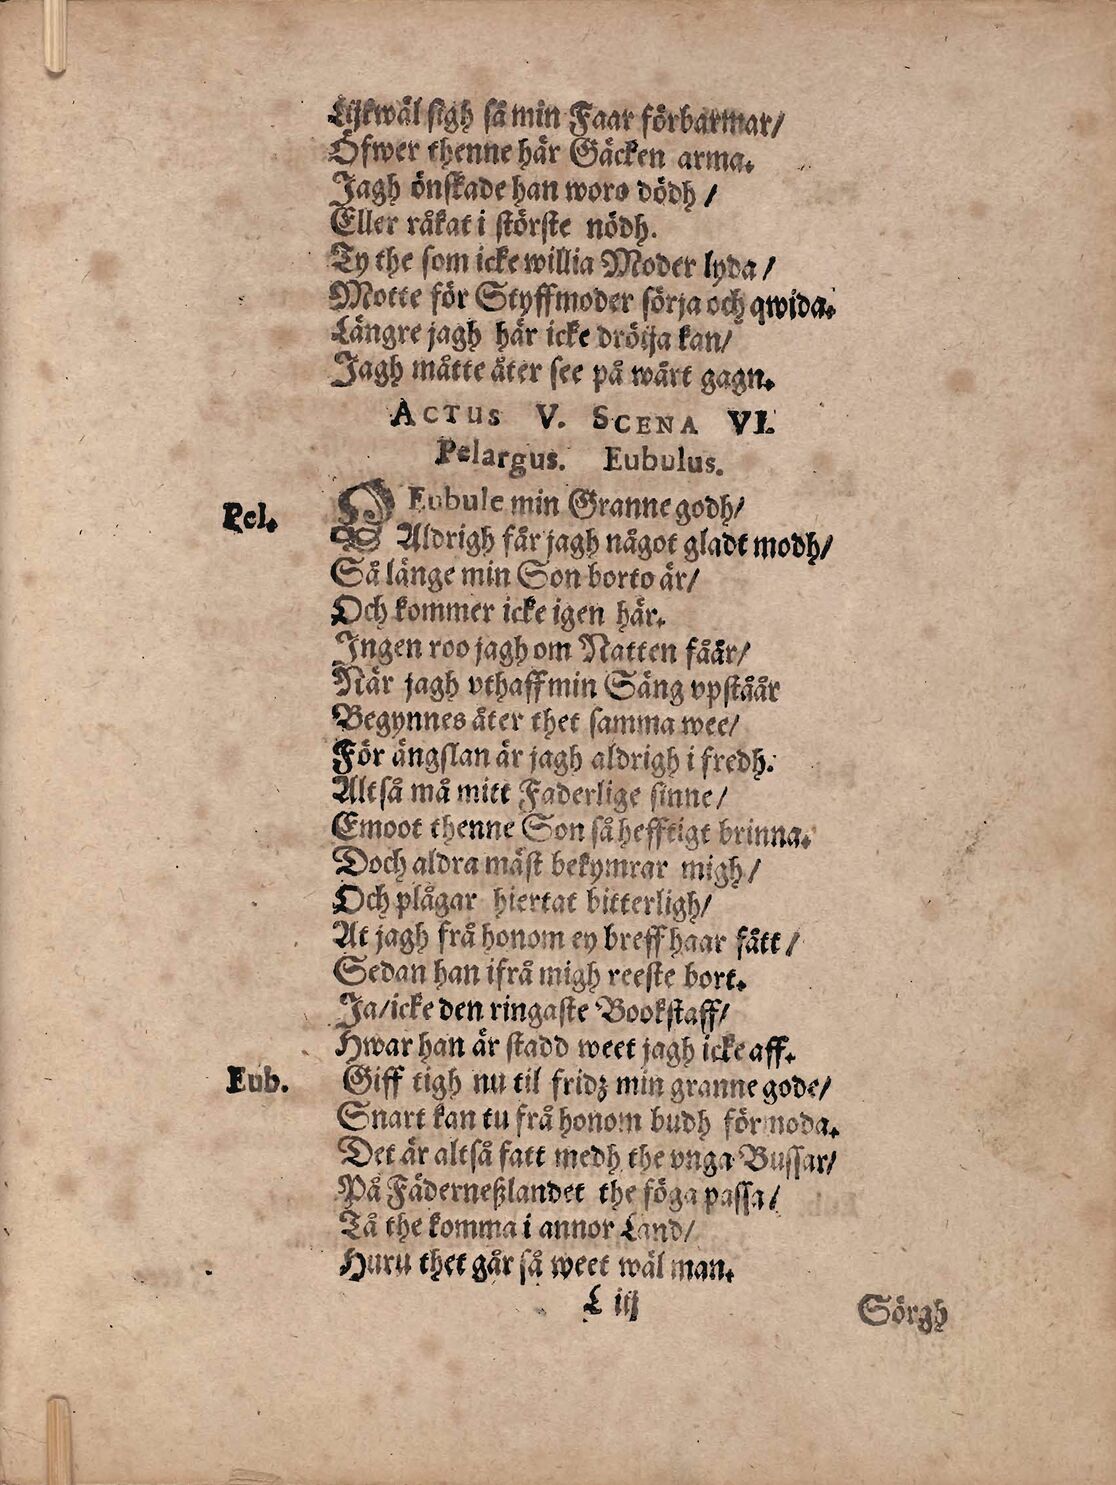 Lijkwäl sigh så min Faar förbarmar/
Öfwer thenne här Gäcken arma.
Jagh önskade han woro dödh /
Eller råkat i störste nödh.
Ty the som icke willia Moder lyda /
Motte för Styffmoder sörja och qwida.
Längre jagh här icke dröija kan/
Jagh måtte åter see på wårt gagn.
ACTUS V. SCENA VI.
Pelargus. Eubulus.
Pel. O Eubule min Granne godh/
Aldrigh får jagh något gladt modh/
Så länge min Son borto är/
Och kommer icke igen här.
Ingen roo jagh om Natten fåår/
När jagh vthaff min Säng vpståår
Begynnes åter thet samma wee/
För ängslan är jagh aldrigh i fredh.
Altså må mitt Faderlige sinne/
Emoot thenne Son så hefftigt brinna.
Doch aldra mäst bekymrar migh/
Och plågar hiertat bitterligh/
At jagh frå honom ey breff haar fått /
Sedan han ifrå migh reeste bort.
Ja/icke den ringaste Bookstaff/
Hwar han är stadd weet jagh icke aff.
Eub. Giff tigh nu til fridz min granne gode/
Snart kan tu frå honom budh förmoda.
Det är altså fatt medh the vnga Bussar/
På Fäderneßlandet the föga passa/
Tå the komma i annor Land/
Huru thet går så weet wäl man.
L iij Sörgh